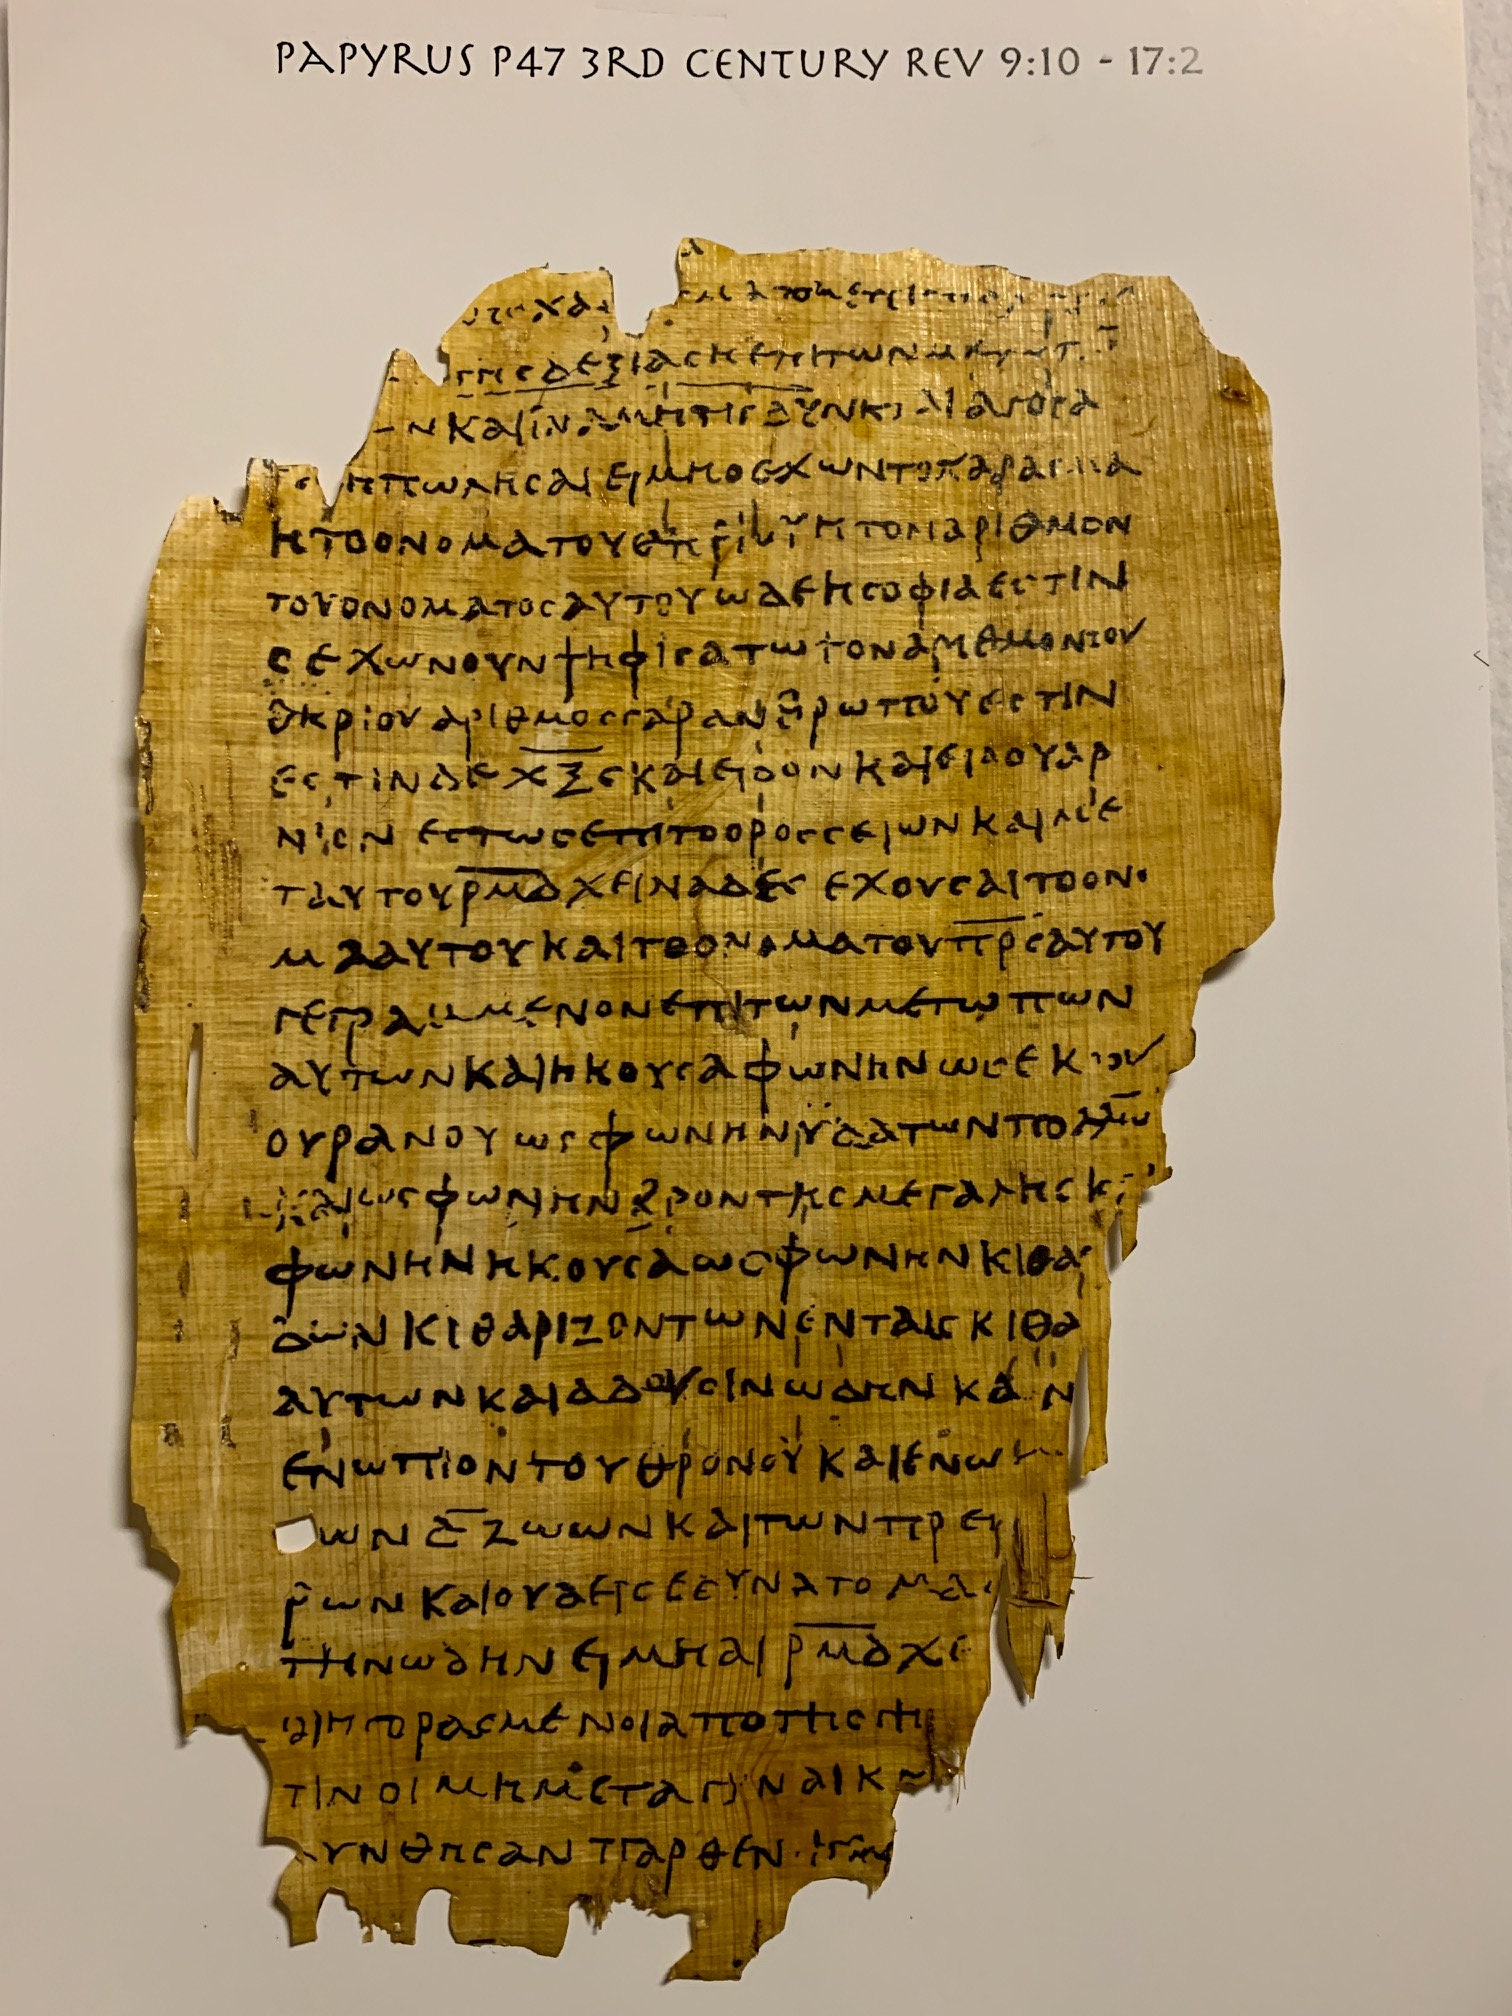 PAPYRUS P47 3RD CENTURY REV 9:10 - 17:2
ΔΕΞΙΑϹ Η ΕΠΙ ΤΩΝ
ΚΑΙ ΙΝΑ ΜΗ ΤΙϹ ΔΥΝΗ ΑΓΟΡΑ
Η ΠΩΛΗϹΑΙ ΕΙ ΜΗ Ο ΕΧΩΝ ΤΟ ΧΑΡΑΓΜΑ
Η ΤΟ ΟΝΟΜΑ ΤΟΥ ΘΗΡΙΟΥ Η ΤΟΝ ΑΡΙΘΜΟΝ
ΤΟΥ ΟΝΟΜΑΤΟϹ ΑΥΤΟΥ ΩΔΕ Η ϹΟΦΙΑ ΕϹΤΙΝ
ΕΧΩΝ ΝΟΥΝ ΨΗΦΙϹΑΤΩ ΤΟΝ ΑΡΙΘΜΟΝ ΤΟΥ
ΘΗΡΙΟΥ ΑΡΙΘΜΟϹ ΓΑΡ ΑΝΘΡΩΠΟΥ ΕϹΤΙΝ
ΕϹΤΙΝ ΔΕ Χ̅Ξ̅Ϛ̅ ΚΑΙ ΕΙΔΟΝ ΚΑΙ ΕΙΔΟΥ ΑΡ
ΝΙΟΝ ΕϹΤΩϹ ΕΠΙ ΤΟ ΟΡΟϹ ϹΕΙΩΝ ΚΑΙ ΜΕ
Τ ΑΥΤΟΥ Ρ̅Μ̅Δ̅ ΧΕΙΝΑΔΕϹ ΕΧΟΥϹΑΙ ΤΟ ΟΝΟ
ΜΑ ΑΥΤΟΥ ΚΑΙ ΤΟ ΟΝΟΜΑ ΤΟΥ Π̅Ρ̅Ϲ̅ ΑΥΤΟΥ
ΓΕΓΡΑΜΜΕΝΟΝ ΕΠΙ ΤΩΝ ΜΕΤΩΠΩΝ
ΑΥΤΩΝ ΚΑΙ ΗΚΟΥϹΑ ΦΩΝΗΝ ΩϹ ΕΚ ΤΟΥ
ΟΥΡΑΝΟΥ ΩϹ ΦΩΝΗΝ ΫΔΑΤΩΝ ΠΟΛΛΩ
ΚΑΙ ΩϹ ΦΩΝΗΝ ΒΡΟΝΤΗϹ ΜΕΓΑΛΗϹ Κ
ΦΩΝΗΝ ΗΚΟΥϹΑ ΩϹ ΦΩΝΗΝ ΚΙΘΑΡ
ΔΩΝ ΚΙΘΑΡΙΖΟΝΤΩΝ ΕΝ ΤΑΙϹ ΚΙΘΑ
ΑΥΤΩΝ ΚΑΙ ΑΔΟΥϹΙΝ ΩΔΗΝ ΚΑ Ν
ΕΝΩΠΙΟΝ ΤΟΥ ΘΡΟΝΟΥ ΚΑΙ ΕΝΩ
ΩΝ Δ̅ ΖΩΩΝ ΚΑΙ ΤΩΝ ΠΡΕ
ΡΩΝ ΚΑΙ ΟΥΔΕΙϹ ΕΔΥΝΑΤΟ ΜΑ
ΤΗΝ ΩΔΗΝ ΕΙ ΜΗ ΑΙ Ρ̅Μ̅Δ̅ ΧΕ
ΟΙ ΗΓΟΡΑϹΜΕΝΟΙ ΑΠΟ ΤΗϹ ΓΗ
ΤΙΝ ΟΙ ΜΗ ΜΕΤΑ ΓΥΝΑΙΚ
ΥΝΘΗϹΑΝ ΠΑΡΘΕΝ